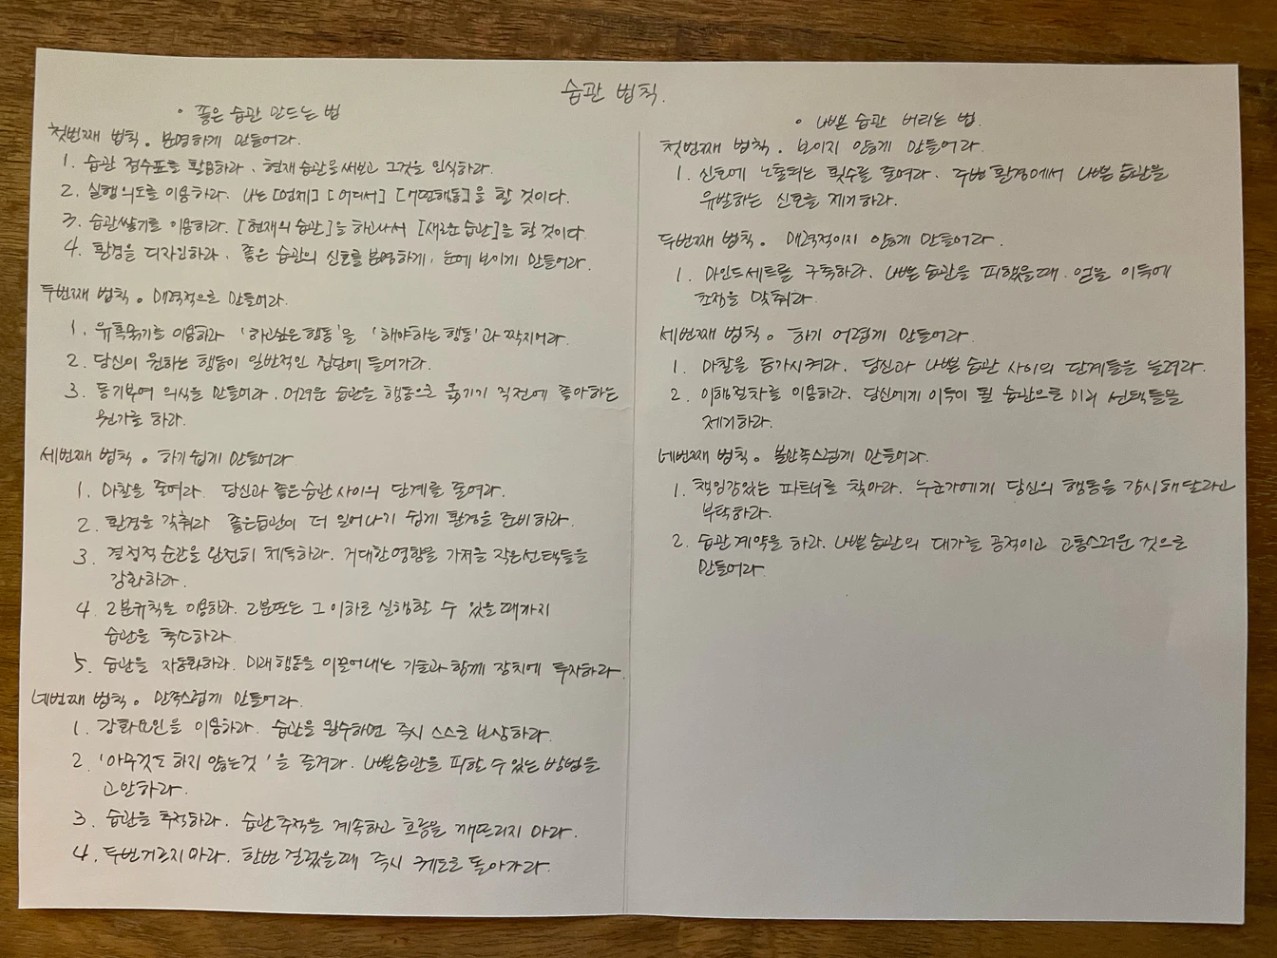 습관 법칙.
• 좋은 습관 만드는 법
첫번째 법칙. 분명하게 만들어라.
1. 습관 점수표를 활용하라. 현재 습관을 써보고 그것을 인식하라.
2. 실행의도를 이용하라. 나는 [언제] [어디서] [어떤행동]을 할 것이다.
3. 습관쌓기를 이용하라. [현재의 습관]을 하고나서 [새로운 습관]을 할 것이다.
4. 환경을 디자인하라. 좋은 습관의 신호를 분명하게, 눈에 보이게 만들어라.
두번째 법칙. 매력적으로 만들어라.
1. 유혹묶기를 이용하라 '하고싶은 행동'을 '해야하는 행동'과 짝지어라.
2. 당신이 원하는 행동이 일반적인 집단에 들어가라.
3. 동기부여 의식을 만들어라. 어려운 습관을 행동으로 옮기기 직전에 좋아하는
뭔가를 하라.
세번째 법칙. 하기 쉽게 만들어라
1. 마찰을 줄여라. 당신과 좋은습관 사이의 단계를 줄여라.
2. 환경을 갖춰라 좋은습관이 더 일어나기 쉽게 환경을 준비하라.
3. 결정적 순간을 완전히 체득하라. 거대한 영향을 가져올 작은선택들을
강화하라.
4. 2분규칙을 이용하라. 2분또는 그 이하로 실행할 수 있을때까지
습관을 축소하라.
5. 습관을 자동화하라. 미래행동을 이끌어내는 기술과 함께 장치에 투자하라.
네번째 법칙. 만족스럽게 만들어라.
1. 강화요인을 이용하라. 습관을 완수하면 즉시 스스로 보상하라.
2. '아무것도 하지 않는것'을 즐겨라. 나쁜습관을 피할 수 있는 방법을
고안하라.
3. 습관을 추적하라. 습관추적을 계속하고 흐름을 깨뜨리지 마라.
4. 두번거르지마라. 한번 걸렀을때 즉시 궤도로 돌아가라.
• 나쁜 습관 버리는 법.
첫번째 법칙. 보이지 않게 만들어라.
1. 신호에 노출되는 횟수를 줄여라. 주방 환경에서 나쁜 습관을
유발하는 신호를 제거하라.
두번째 법칙. 매력적이지 않게 만들어라.
1. 마인드세트를 구축하라. 나쁜 습관을 피했을때. 얻을 이득에
초점을 맞춰라.
세번째 법칙. 하기 어렵게 만들어라.
1. 마찰을 증가시켜라. 당신과 나쁜 습관 사이의 단계들을 늘려라.
2. 이행장치를 이용하라. 당신에게 이득이 될 습관으로 미래 선택들을
제거하라.
네번째 법칙. 불만족스럽게 만들어라.
1. 책임감있는 파트너를 찾아라. 누군가에게 당신의 행동을 감시해달라고
부탁하라.
2. 습관계약을 하라. 나쁜 습관의 대가를 공적이고 고통스러운 것으로
만들어라.